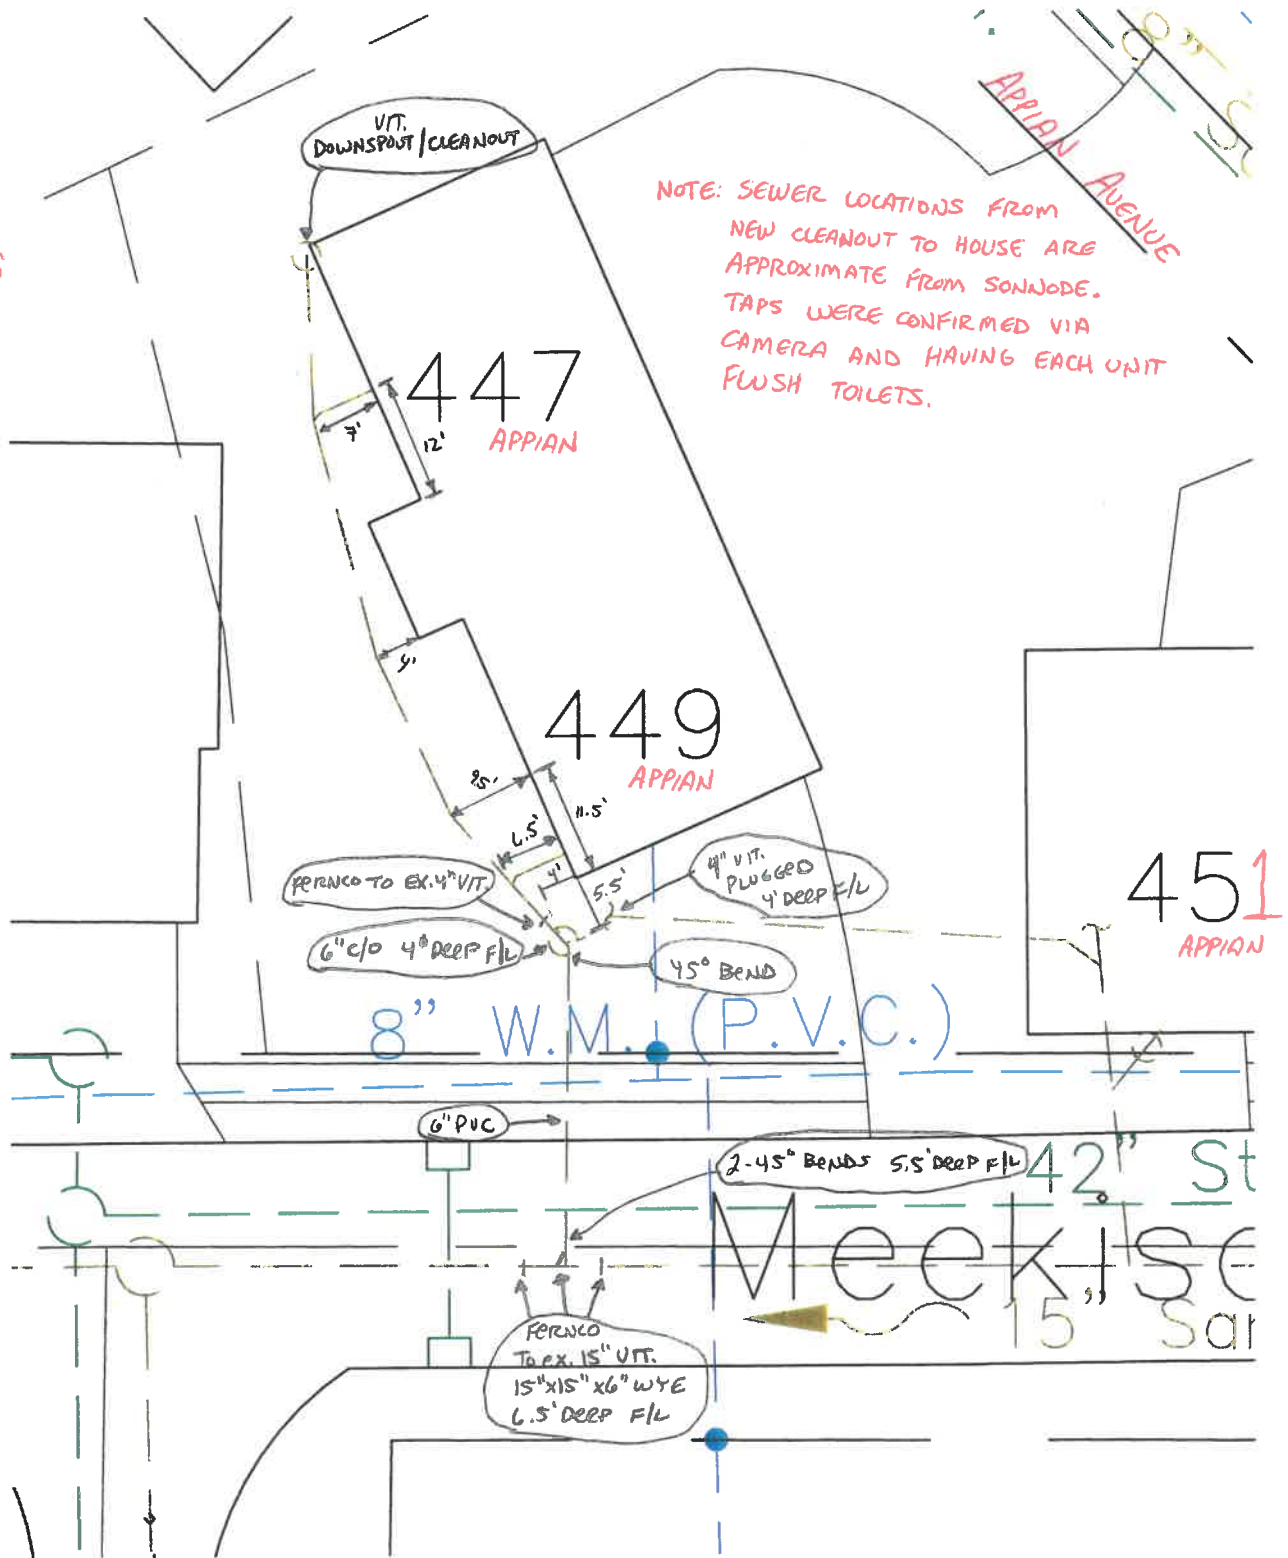 VIT.
DOWNSPOUT/CLEANOUT
8"
APPIAN AVENUE
NOTE: SEWER LOCATIONS FROM
NEW CLEANOUT TO HOUSE ARE
APPROXIMATE FROM SONNODE.
TAPS WERE CONFIRMED VIA
CAMERA AND HAVING EACH UNIT
FLUSH TOILETS.
447
APPIAN
7'
12'
449
APPIAN
11.5'
6.5'
4'
5.5'
FERNCO TO EX. 4" VIT.
4" VIT.
PLUGGED
4' DEEP F/L
451
APPIAN
6" C/O 4' DEEP F/L
45° BEND
8" W.M. (P.V.C.)
6" PVC
2-45° BENDS 5.5' DEEP F/L
42" St
Meekiso
15" Sar
FERNCO
TO EX. 15" VIT.
15"x15"x6" WYE
6.5' DEEP F/L